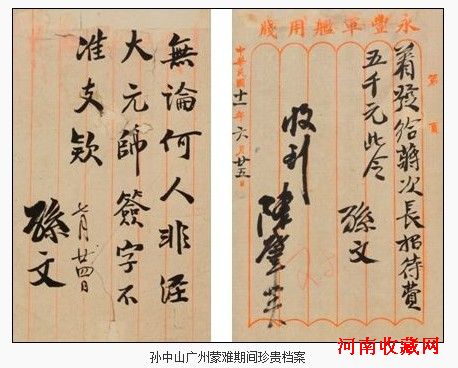 永豐軍艦用牋
第 頁
着發給蔣次長招待費
五千元此令
孫文
收到
陳肇英
中華民國十一年六月廿五日
無論何人非經
大元帥簽字不
准支欵
六月廿四日
孫文
孙中山广州蒙难期间珍贵档案
河南收藏网